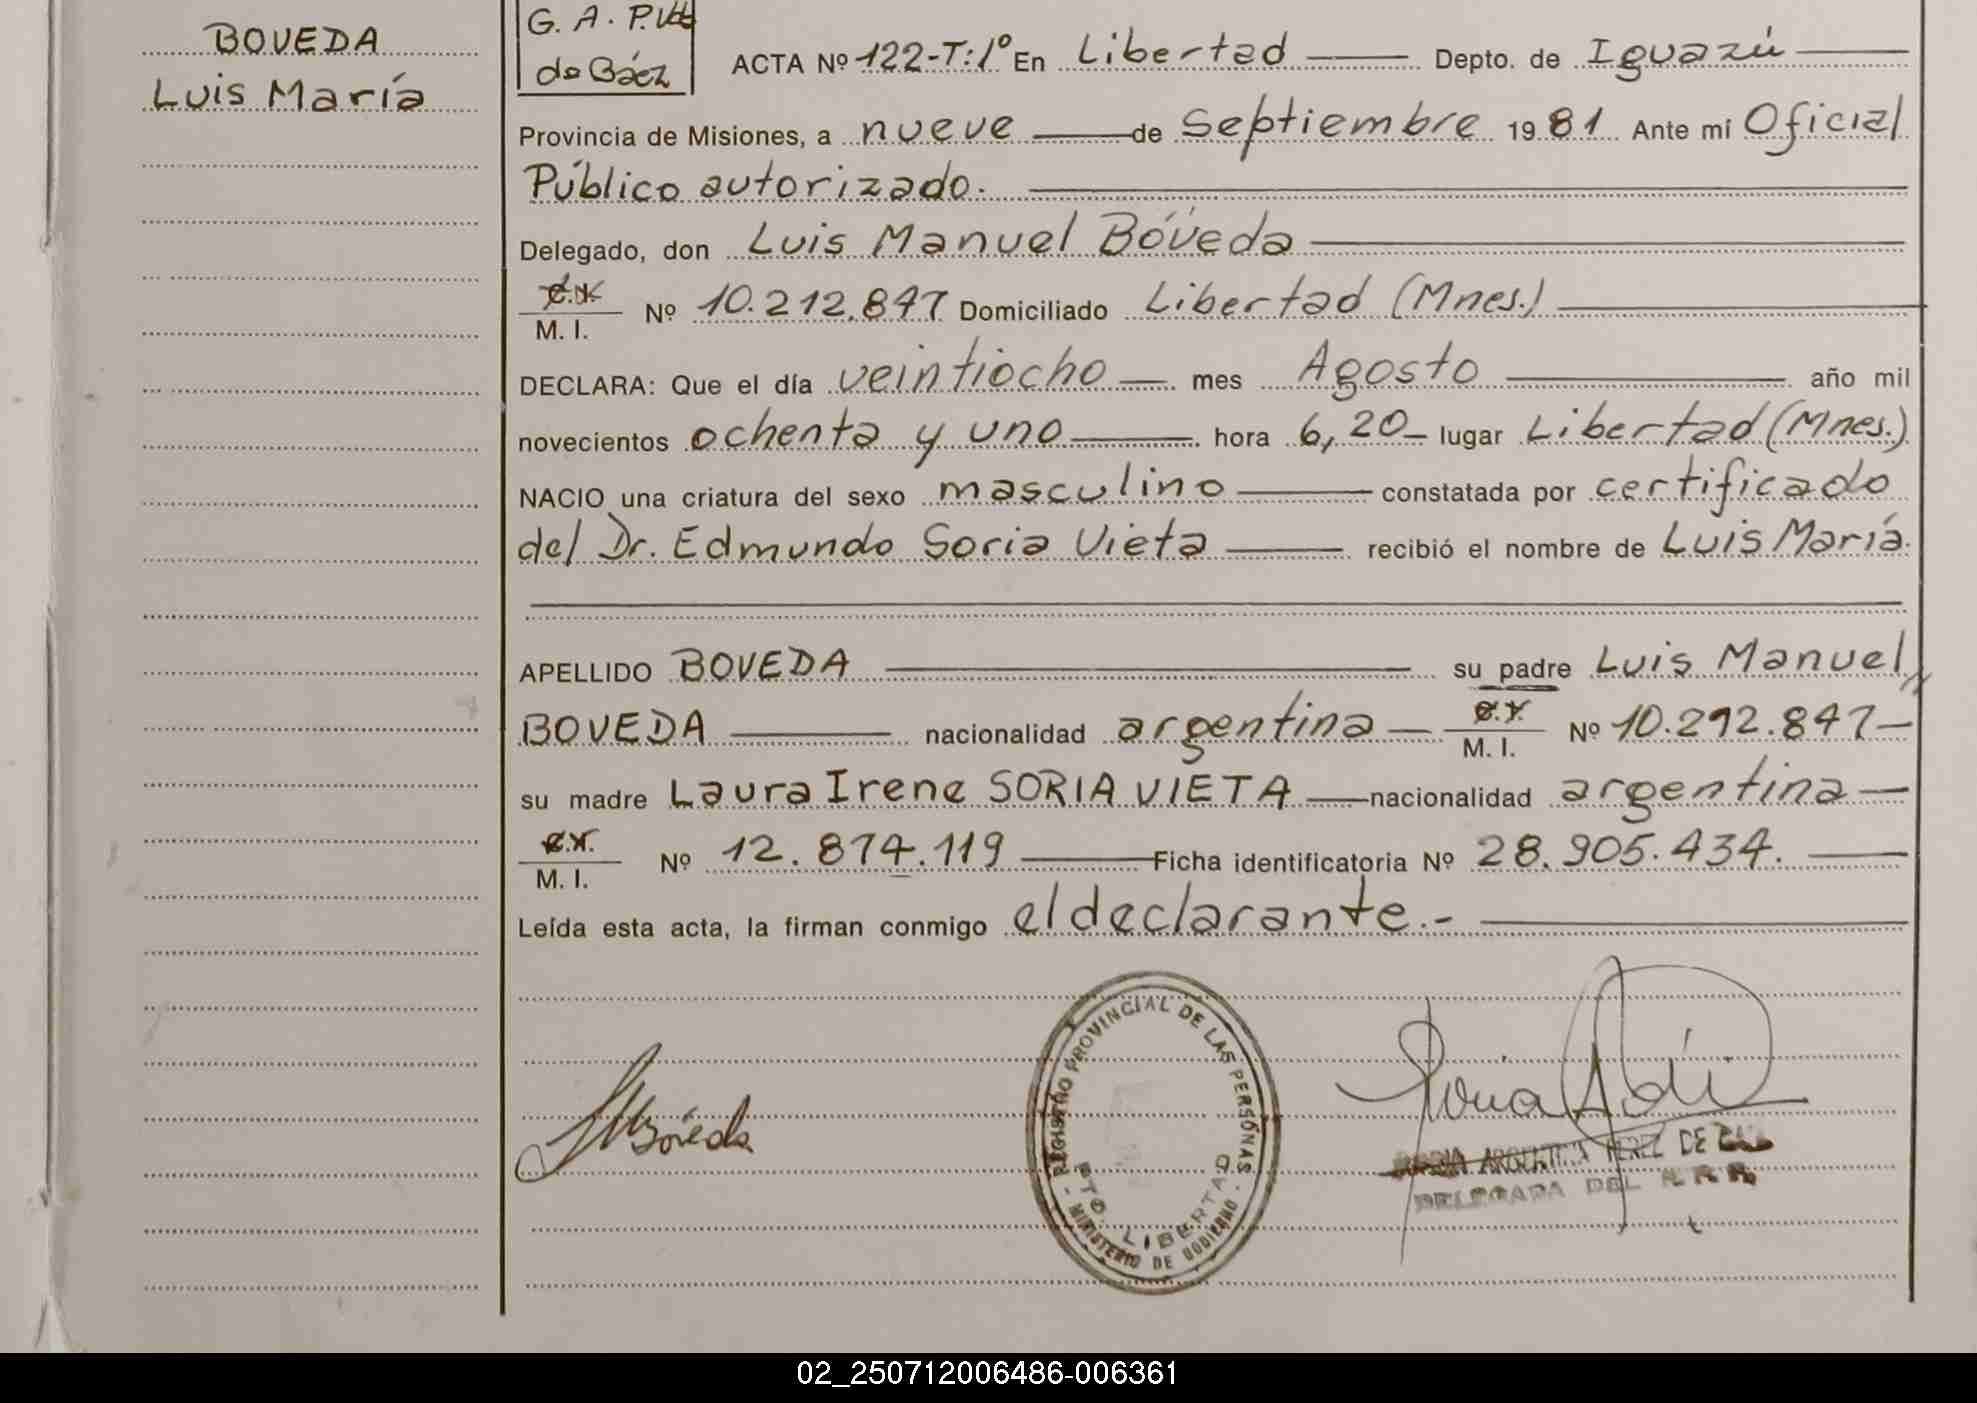 BOVEDA
Luis María
G. A. P.Vda
de Báez
ACTA Nº 122-T:1º En Libertad Depto. de Iguazú
Provincia de Misiones, a nueve de Septiembre 1981 Ante mí Oficial
Público autorizado.
Delegado, don Luis Manuel Bóveda
C.I.
M. I. Nº 10.212.847 Domiciliado Libertad (Mnes.)
DECLARA: Que el día veintiocho mes Agosto año mil
novecientos ochenta y uno hora 6,20 lugar Libertad (Mnes.)
NACIO una criatura del sexo masculino constatada por certificado
del Dr. Edmundo Soria Vieta recibió el nombre de Luis María.
APELLIDO BOVEDA su padre Luis Manuel
BOVEDA nacionalidad argentina C.I. M. I. Nº 10.212.847
su madre Laura Irene SORIA VIETA nacionalidad argentina
C.I.
M. I. Nº 12.874.119 Ficha identificatoria Nº 28.905.434.
Leída esta acta, la firman conmigo el declarante.-
REGISTRO PROVINCIAL DE LAS PERSONAS
PTO. LIBERTAD
MINISTERIO DE GOBIERNO
Bóveda
ARGENTINA PEREZ DE
DELEGADA DEL
02_250712006486-006361